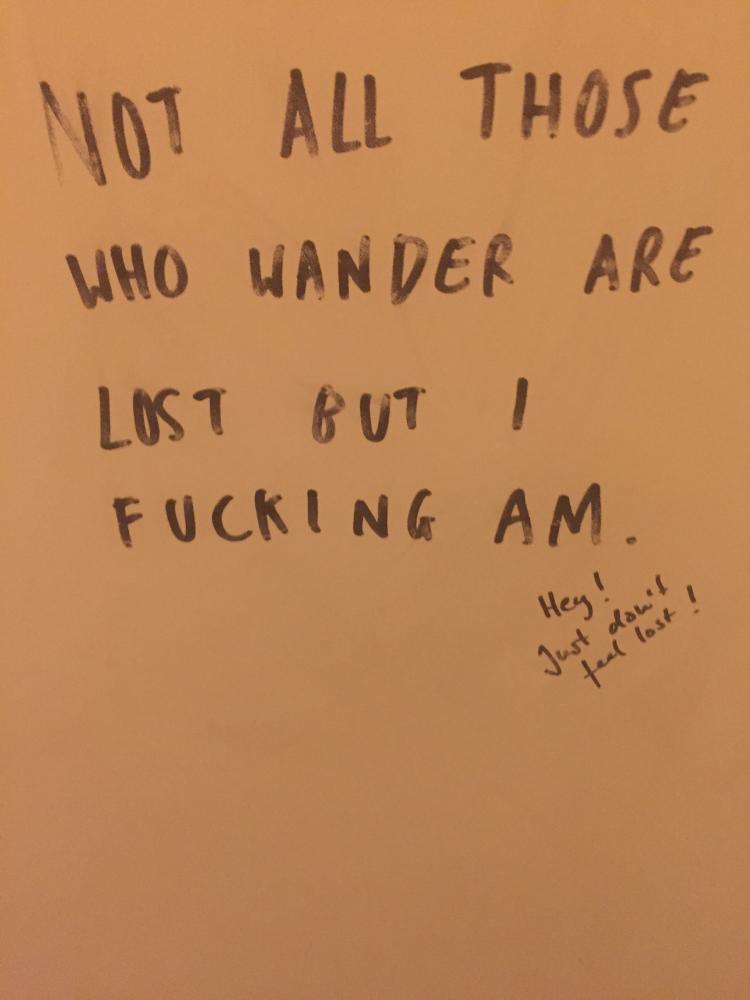 NOT ALL THOSE
WHO WANDER ARE
LOST BUT I
FUCKING AM.
Hey!
Just don't
feel lost!